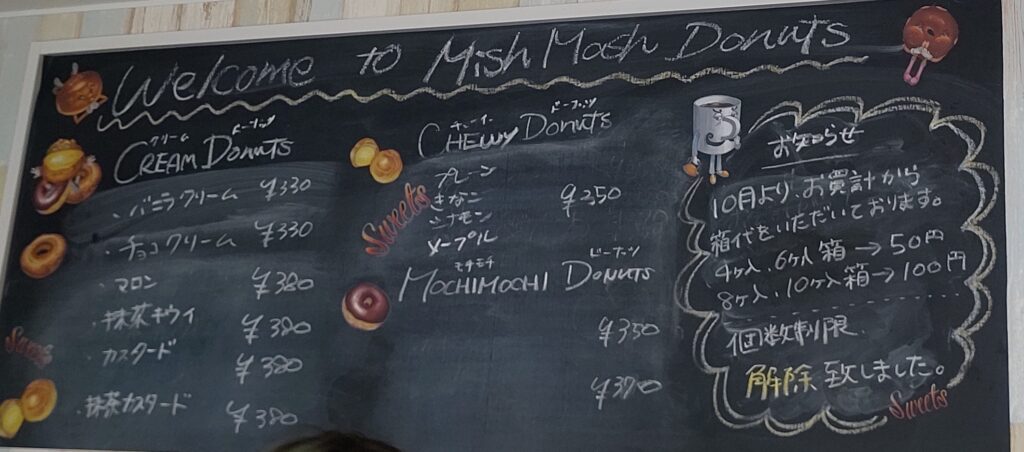 Welcome to MishMosh Donuts
クリーム ドーナッツ
CREAM DONUTS
・バニラクリーム ¥330
・チョコクリーム ¥330
・マロン ¥380
・抹茶キウイ ¥380
・カスタード ¥380
・抹茶カスタード ¥380
Sweets
チューイー ドーナッツ
CHEWY DONUTS
プレーン
きなこ ¥250
シナモン
メープル
Sweets
モチモチ ドーナッツ
MOCHIMOCHI DONUTS
¥350
¥370
お知らせ
10月より、お買計から
箱代をいただいております。
4ヶ入、6ヶ入箱→50円
8ヶ入、10ヶ入箱→100円
個数制限
解除致しました。
Sweets